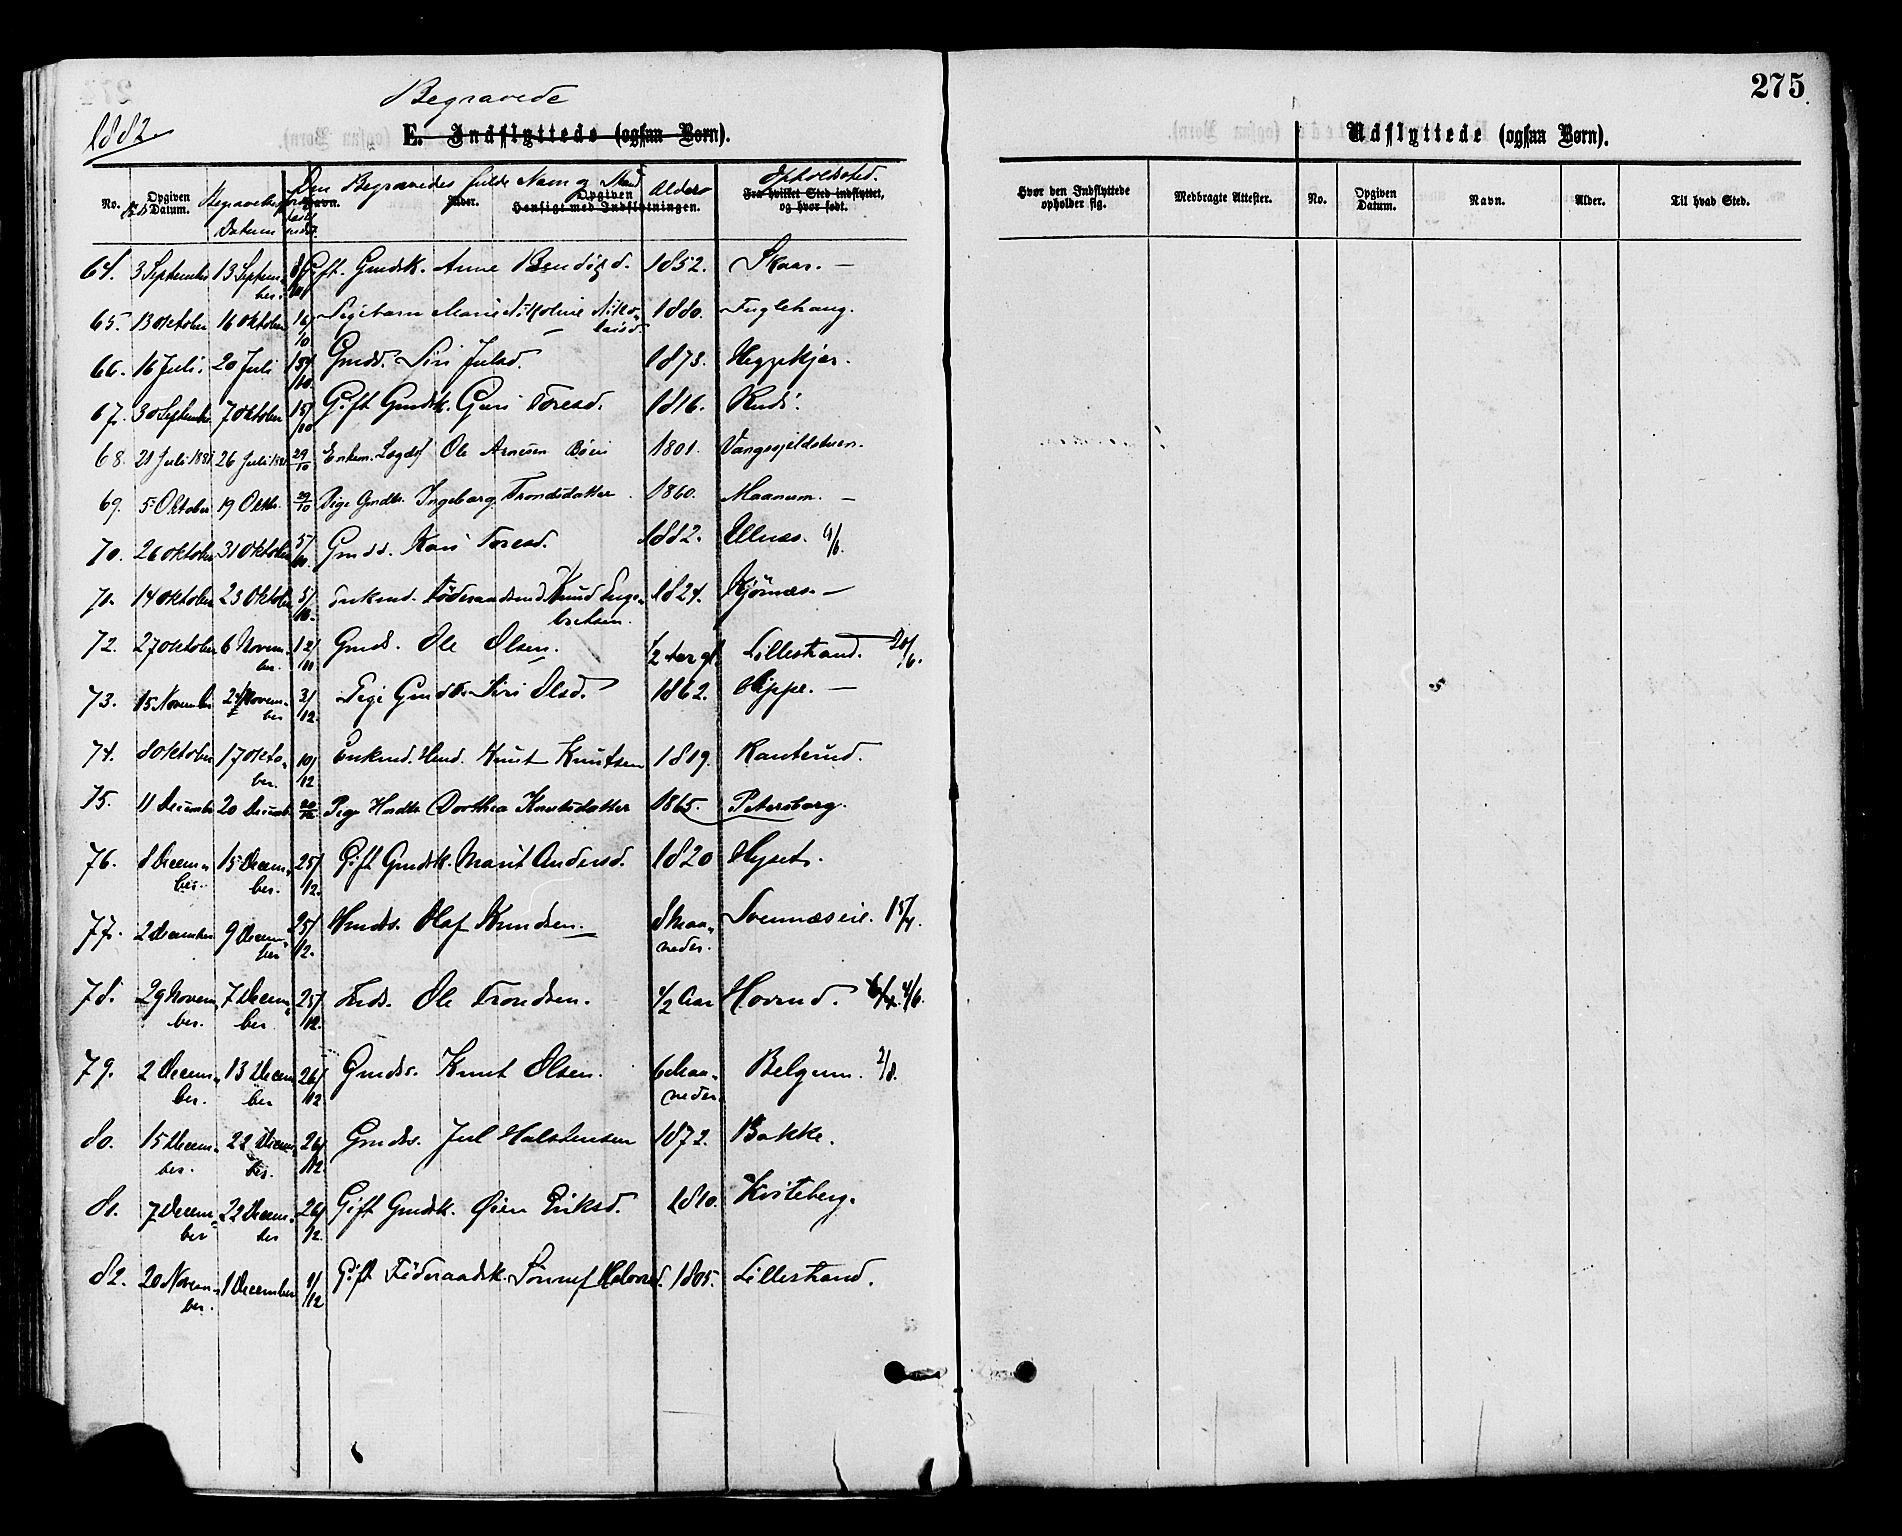 275
Begravede
1882.
E. Indflyttede (ogsaa Børn).
Udflyttede (ogsaa Børn).
No. Opgiven Datum. Begravelses Datum Navn. Den Begravedes fulde Navn og Stand Alder. Opgiven Hensigt med Indflytningen. Alder Opholdssted. Fra hvilket Sted indflyttet, og hvor født.
Hvor den Indflyttede opholder sig. Medbragte Attester. No. Opgiven Datum. Navn. Alder. Til hvad Sted.
64. 3 September 13 September Gft. Gmdsk. Anne 1852. Skaar. —
65. 13 Oktober 16 Oktober 16/10 Pigebarn Marie Nikoline Nikolaisd. 1880. Fuglehaug.
66. 16 Juli. 20 Juli 15/10. Gmdd. Siri Julsd. 1873. Heggekjær.
67. 30 September 7 Oktober 15/10 Gift Gmdsk. Guri Toresd. 1816. Rudi.
68. 21 Juli 1881 26 Juli 1881 29/10 Enkem. Lægdsl. Ole Arnesen Bøen 1801. Vangsgjeldstuen.
69. 5 Oktober 19 Oktbr. 29/10 Pige Gmdtr. Ingeborg Trondsdatter 1860. Maanum. —
70. 26 Oktober 31 Oktober 5/11. Gmdd. Kari Toresd. 1882. Ulnæs. 9/6.
71. 14 Oktober 23 Oktober 5/11. Enkmd. Föderaadsmd. Knud Engebretsen. 1824. Kjørnæs. —
72. 27 Oktober 6 November. 12/11 Gmds. Ole Olsen. 1/2 Aar gl. Lillestrand. 20/6.
73. 15 November 24 November 3/12. Pige Gmdtr. Siri Olsd. 1862. Hippe. —
74. 8 Oktober 17 Oktober. 10/12 Enkmd. Hmd. Knut Knutsen 1819. Ranterud.
75. 11 December 20 December Pige Hmdtr. Dorthea Knutsdatter 1865. Petersborg.
76. 8 December. 15 December. 25/12. Gift Gmdsk. Marit Andersd. 1820 Hyset.
77. 2 December 9 December 25/12. Hmds. Olaf Knudsen. 8 Maaneder. Svennæseie. 15/4.
78. 29 November. 7 December 25/12. Inds. Ole Trondsen. 1/2 Aar Hovrud. 6/4. 4/6.
79. 2 December. 13 December 26/12 Gmds. Knut Olsen. 6 Maaneder. Belgum. 2/8.
80. 15 December. 22 December. 26/12. Gmds. Jul Halstensen 1872. Bakke.
81. 7 December 22 December 26/12. Gift Gmdsk. Øien Eriksd. 1810. Kviteberg.
82. 20 November. 1 December 1/12 Gift Föderaadsk. Sönnef Halvorsd. 1805. Lillestrand.